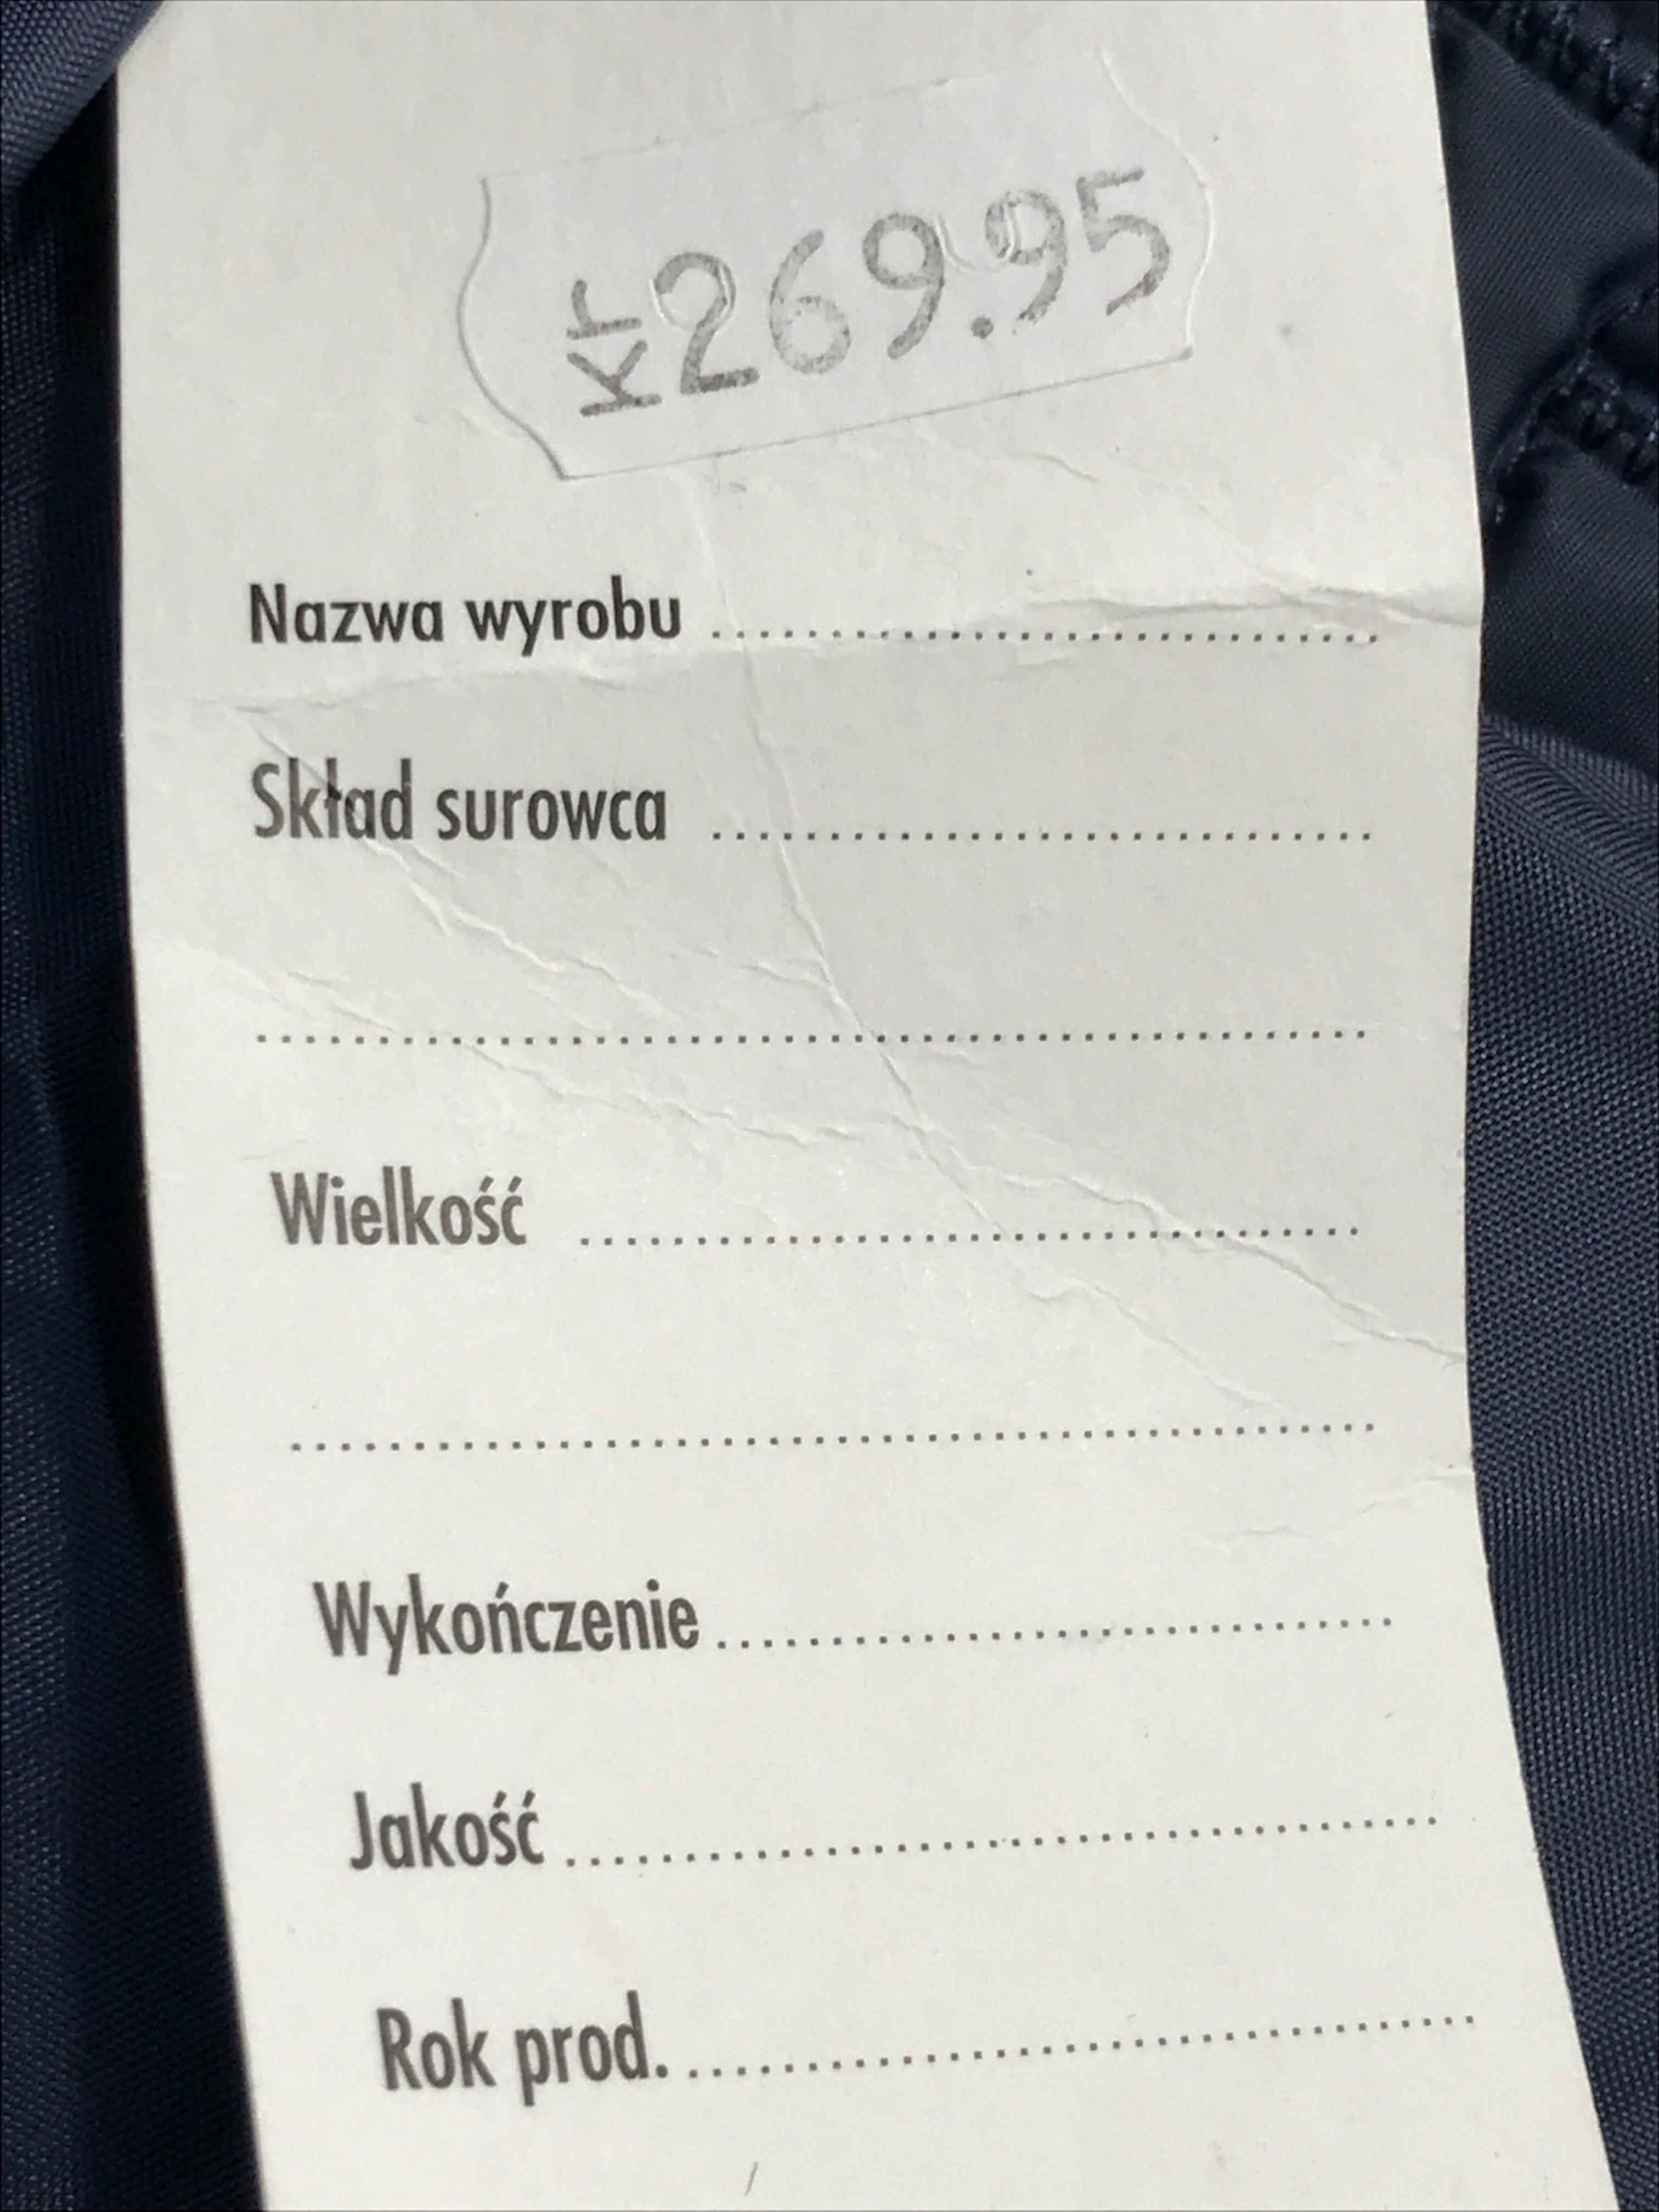 Kr 269.95
Nazwa wyrobu ..............................
Skład surowca ..............................
..................................................
Wielkość ...................................
..................................................
Wykończenie ..............................
Jakość ......................................
Rok prod. ...................................